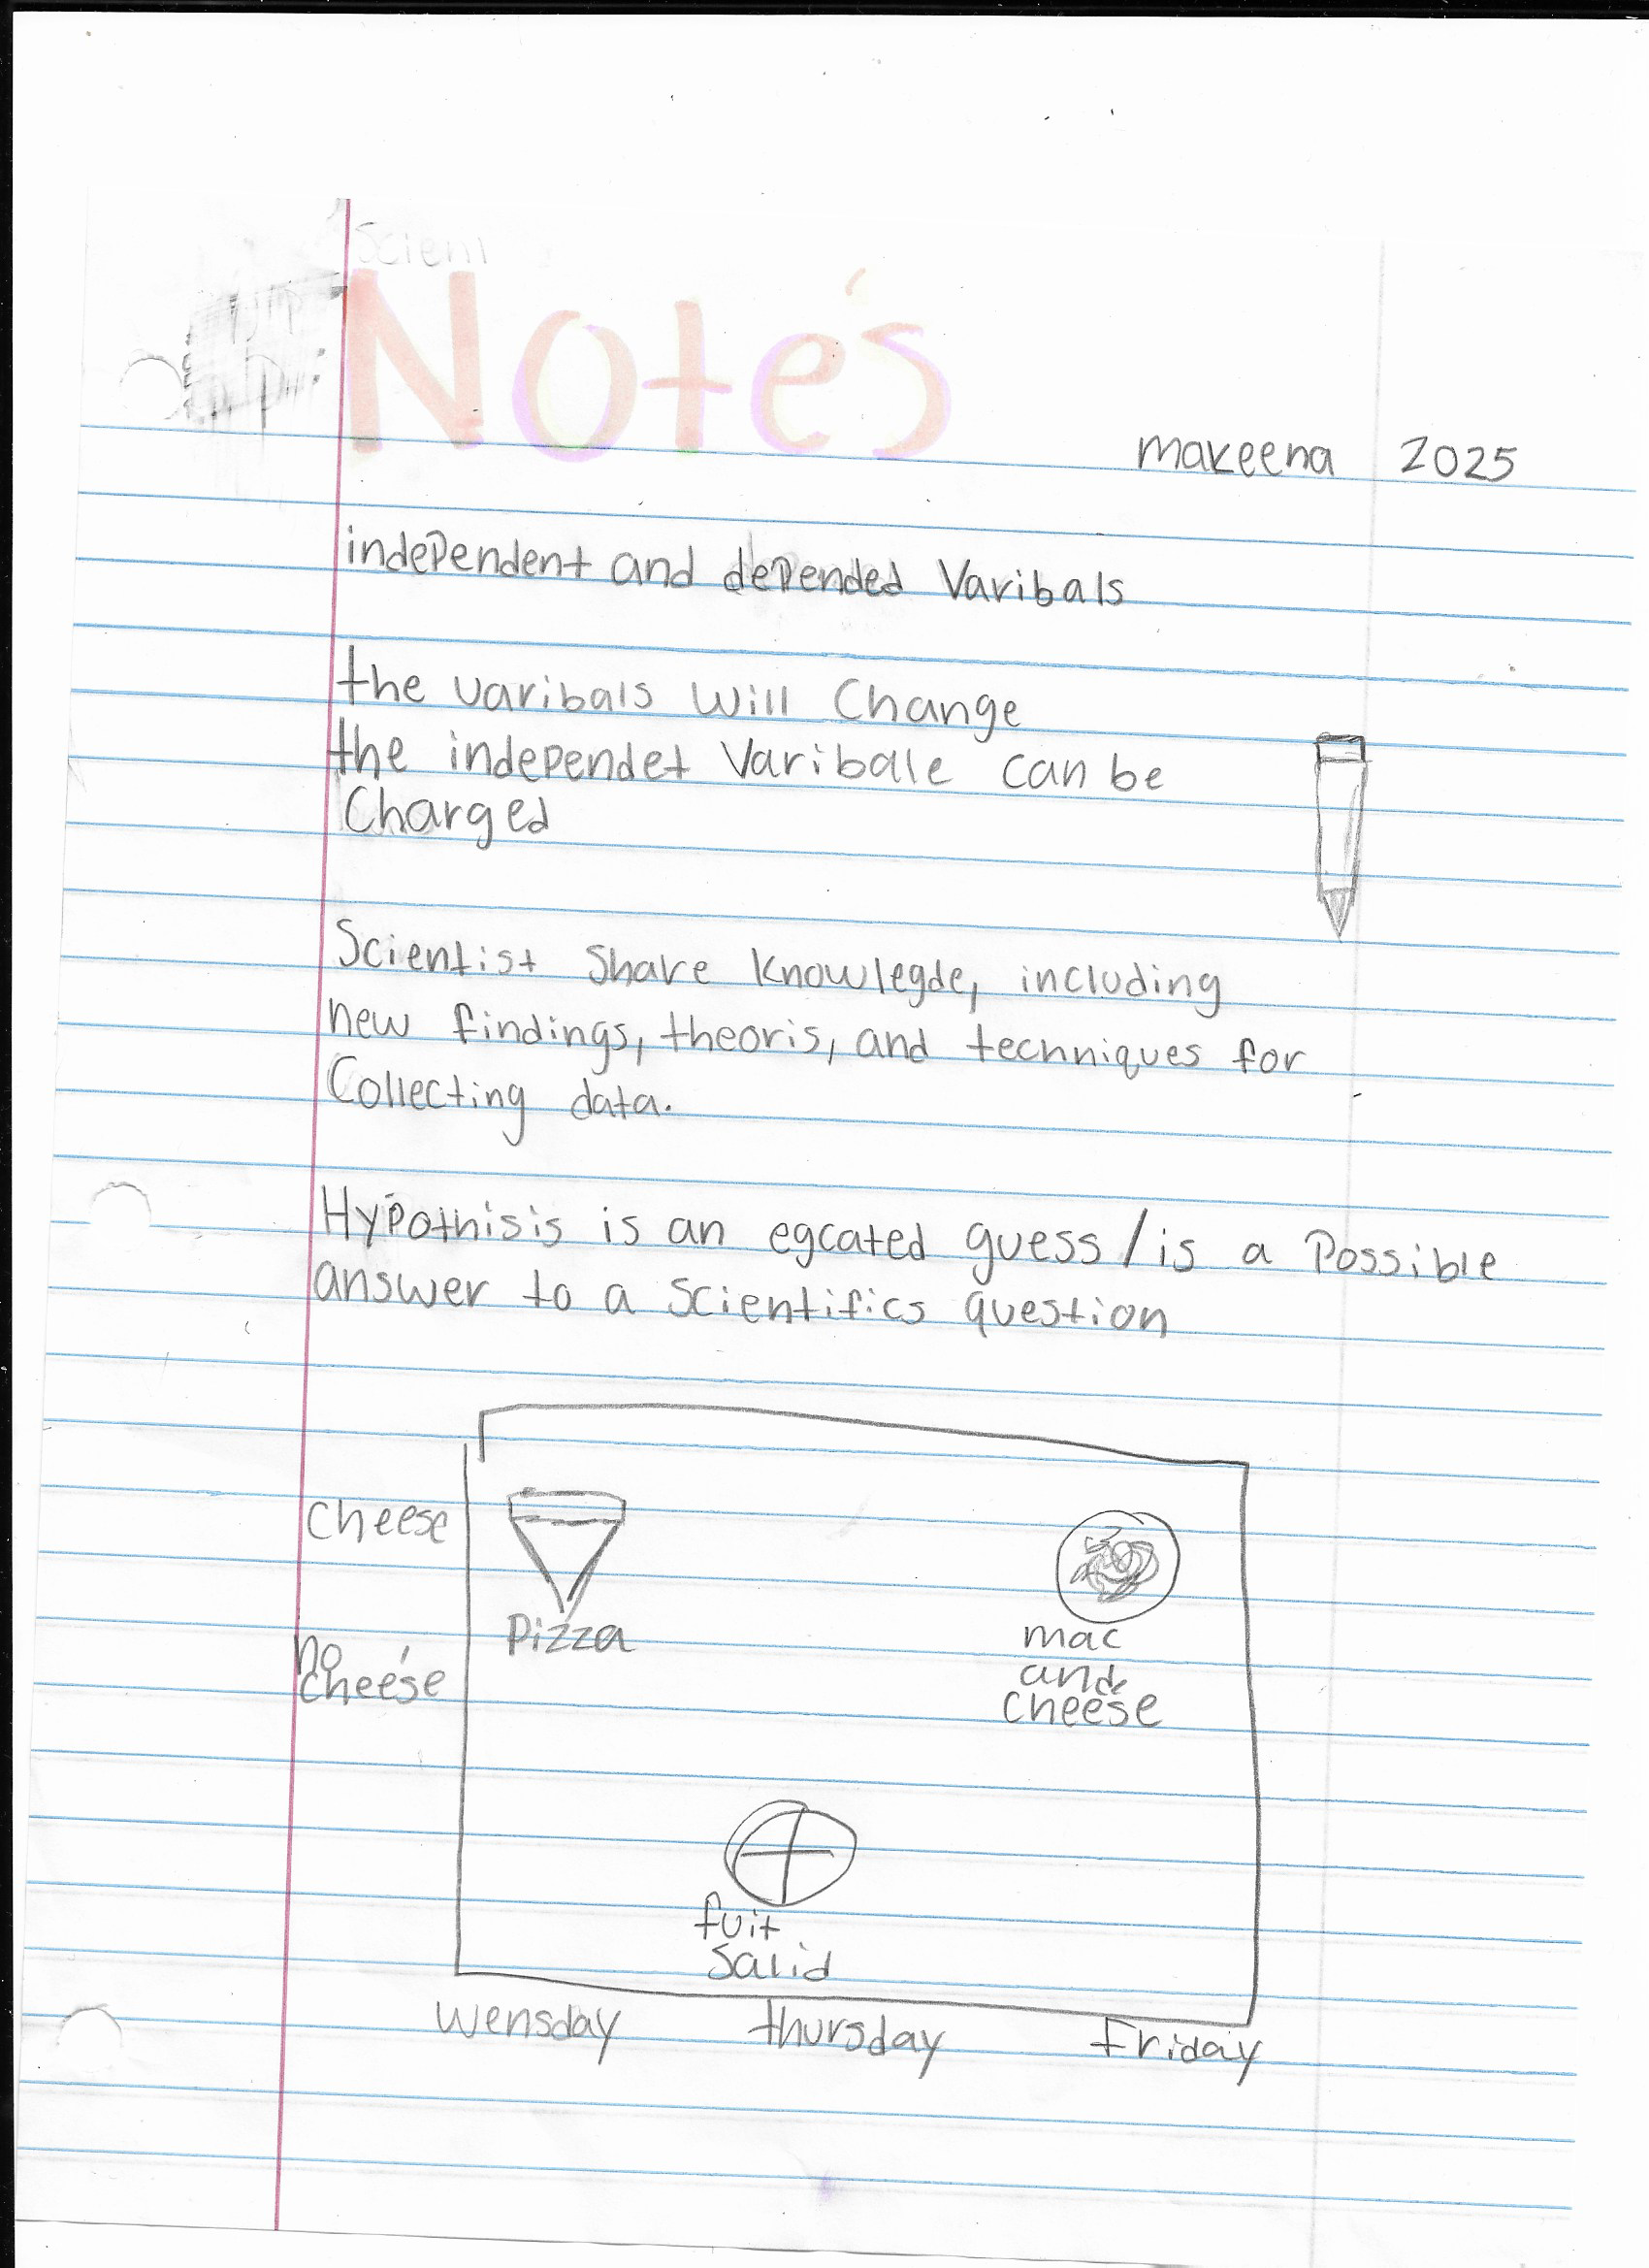 Scieni
Note's
makeena 2025
independent and depended Varibals
the varibals will Change
the independet Varibale can be
Charged
Scientist Share knowlegde, including
new findings, theoris, and techniques for
Collecting data.
Hypothisis is an egcated guess / is a Possible
answer to a scientifics question
Cheese
Pizza
mac
and
cheese
no
cheese
fuit
salid
wensday thursday friday